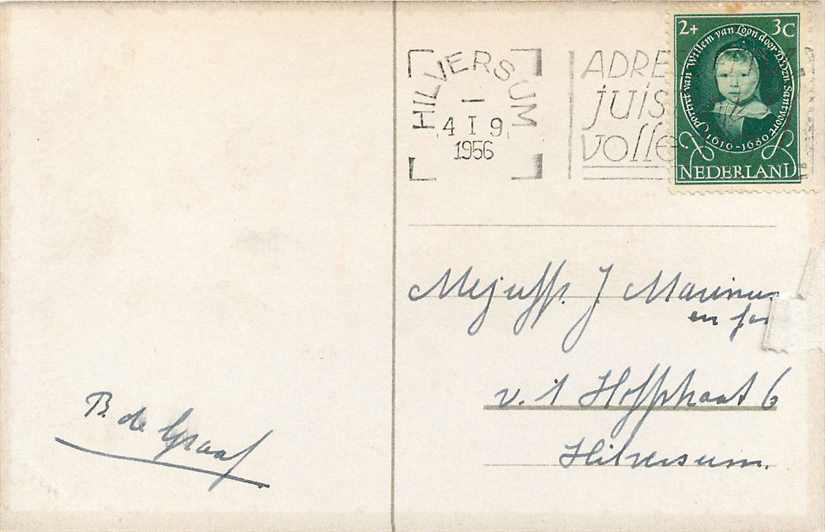 HILVERSUM
4 I 9
1956
ADRE
juis
volle
2+ 3C
portret van Willem van Loon door D.Dzn Santvoort
1610-1680
NEDERLAND
Mejuff. J. Marinus
en fam
v. 't Hoffstraat 6
Hilversum.
B. de Graaf